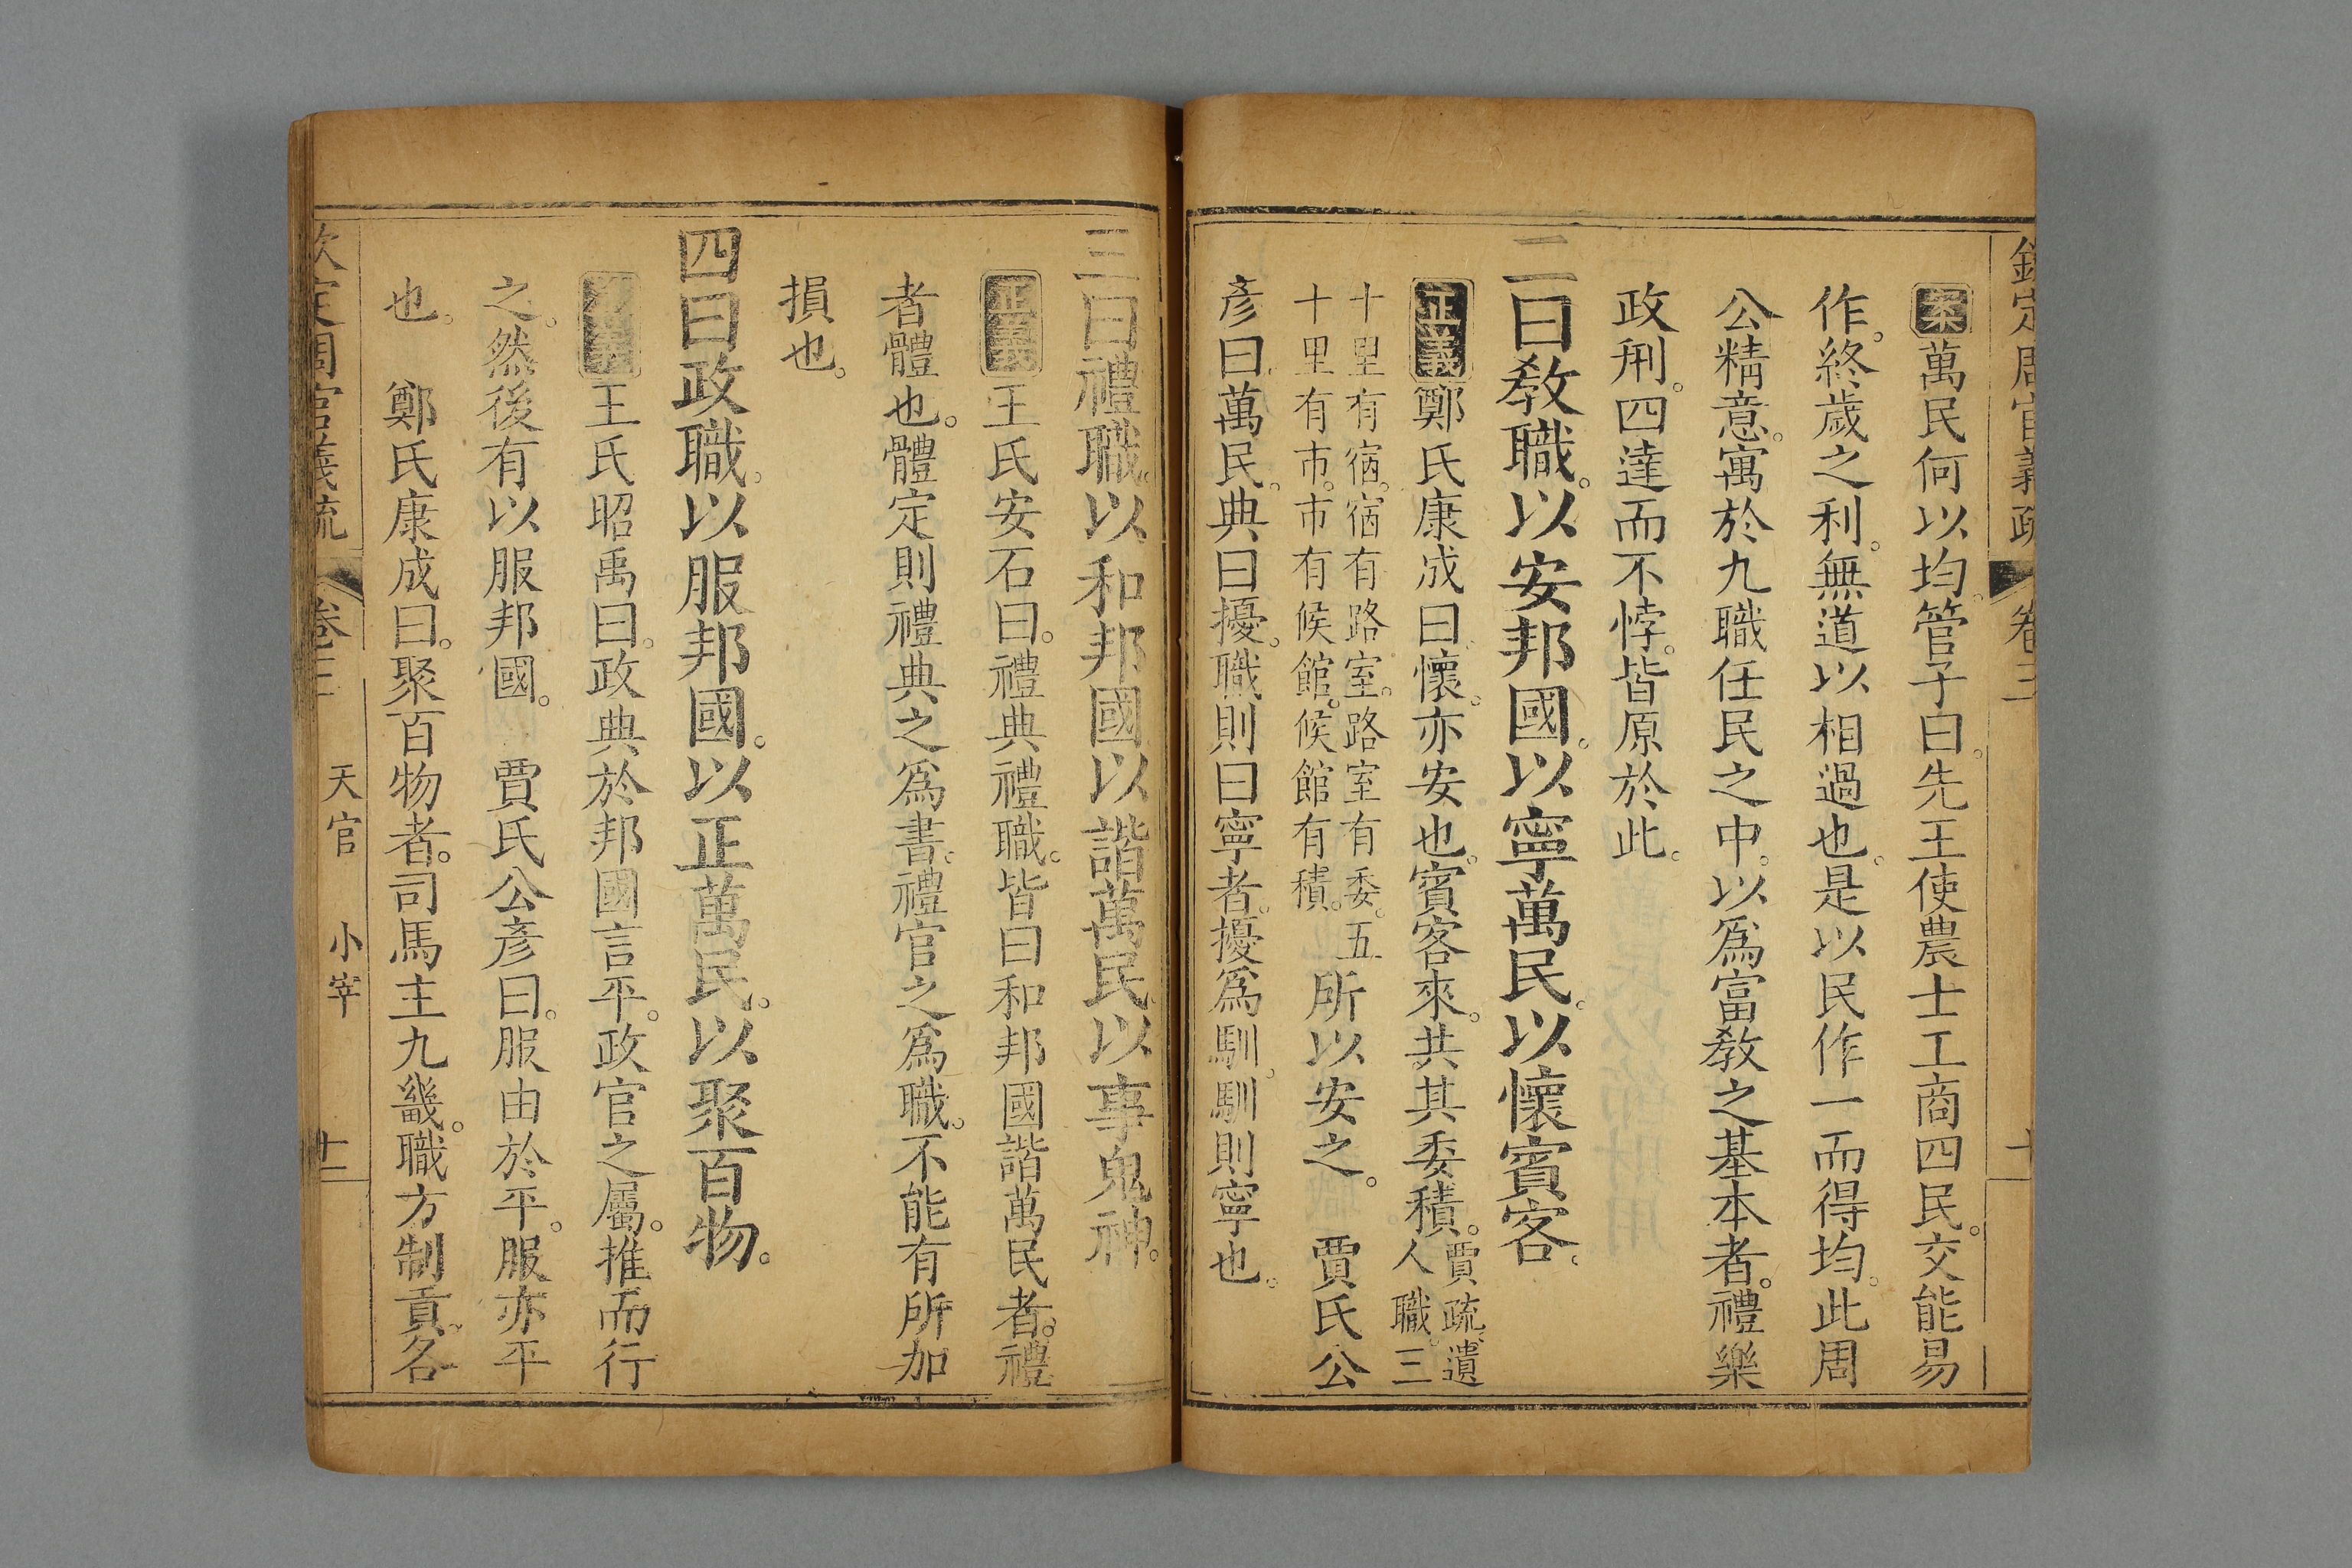 欽定周官義疏 卷三
案萬民何以均。管子曰。先王使農士工商四民。交能易
作。終歲之利。無道以相過也。是以民作一而得均。此周
公精意。寓於九職任民之中。以爲富敎之基本者。禮樂
政刑。四達而不悖。皆原於此。
二曰敎職。以安邦國。以寧萬民。以懷賓客。
正義鄭氏康成曰。懷。亦安也。賓客來。共其委積。賈疏。遺人職。三
十里有宿。宿有路室。路室有委。五十里有市。市有候館。候館有積。所以安之。　賈氏公
彥曰。萬民。典曰擾。職則曰寧者。擾爲馴。馴則寧也。
三曰禮職。以和邦國。以諧萬民。以事鬼神。
正義王氏安石曰。禮典禮職。皆曰和邦國諧萬民者。禮
者體也。體定則禮典之爲書。禮官之爲職。不能有所加
損也。
四曰政職。以服邦國。以正萬民。以聚百物。
王氏昭禹曰。政典於邦國言平。政官之屬。推而行
之。然後有以服邦國。　賈氏公彥曰。服由於平。服亦平
也。　鄭氏康成曰。聚百物者。司馬主九畿。職方制貢。各
欽定周官義疏 卷三 天官 小宰 十一